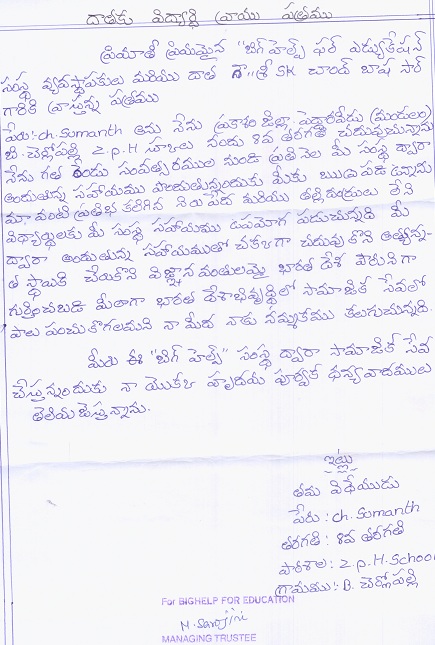 దాతకు విద్యార్థి వ్రాయు పత్రము
ప్రియాతి ప్రియమైన "బిగ్ హెల్ప్ ఫర్ ఎడ్యుకేషన్
సంస్థ వ్యవస్థాపకులు మరియు దాత గౌ,, శ్రీ SK చాంద్ బాష సార్
గారికి వ్రాస్తున్న పత్రము
పేరు:- ch. Sumanth అను నేను ప్రకాశం జిల్లా, పెద్దారవీడు (మండలం)
బి. చెర్లోపల్లి Z.p.H స్కూలు నందు 8వ తరగతి చదువుచున్నాను
నేను గత రెండు సంవత్సరముల నుండి ప్రతి నెల మీ సంస్థ ద్వారా
అందుతున్న సహాయము పొందుతున్నందుకు మీకు ఋణపడి ఉన్నాను
మా వంటి ప్రతిభ కలిగిన నిరుపేద మరియు తల్లిదండ్రులు లేని
విద్యార్థులకు మీ సంస్థ సహాయము ఉపయోగ పడుచున్నది మీ
ద్వారా అందుతున్న సహాయములో చక్కగా చదువు కొని అత్యున్న-
త స్థాయికి చేరుకొని విజ్ఞాన వంతులమై భారత దేశ పౌరునిగా
గుర్తించబడి మీలాగా భారత దేశాభివృద్ధిలో సామాజిక సేవలో
పాలు పంచుకోగలమని నా మీద నాకు నమ్మకము కలుగుచున్నది.
మీరు ఈ "బిగ్ హెల్ప్" సంస్థ ద్వారా సామాజిక సేవ
చేస్తున్నందుకు నా యొక్క హృదయ పూర్వక ధన్యవాదములు
తెలియజేస్తున్నాను.
ఇట్లు
తమ విధేయుడు
పేరు : ch. Sumanth
తరగతి : 8వ తరగతి
పాఠశాల : Z.p.H. School
గ్రామము : B. చెర్లోపల్లి
For BIGHELP FOR EDUCATION
M. Sarojini
MANAGING TRUSTEE